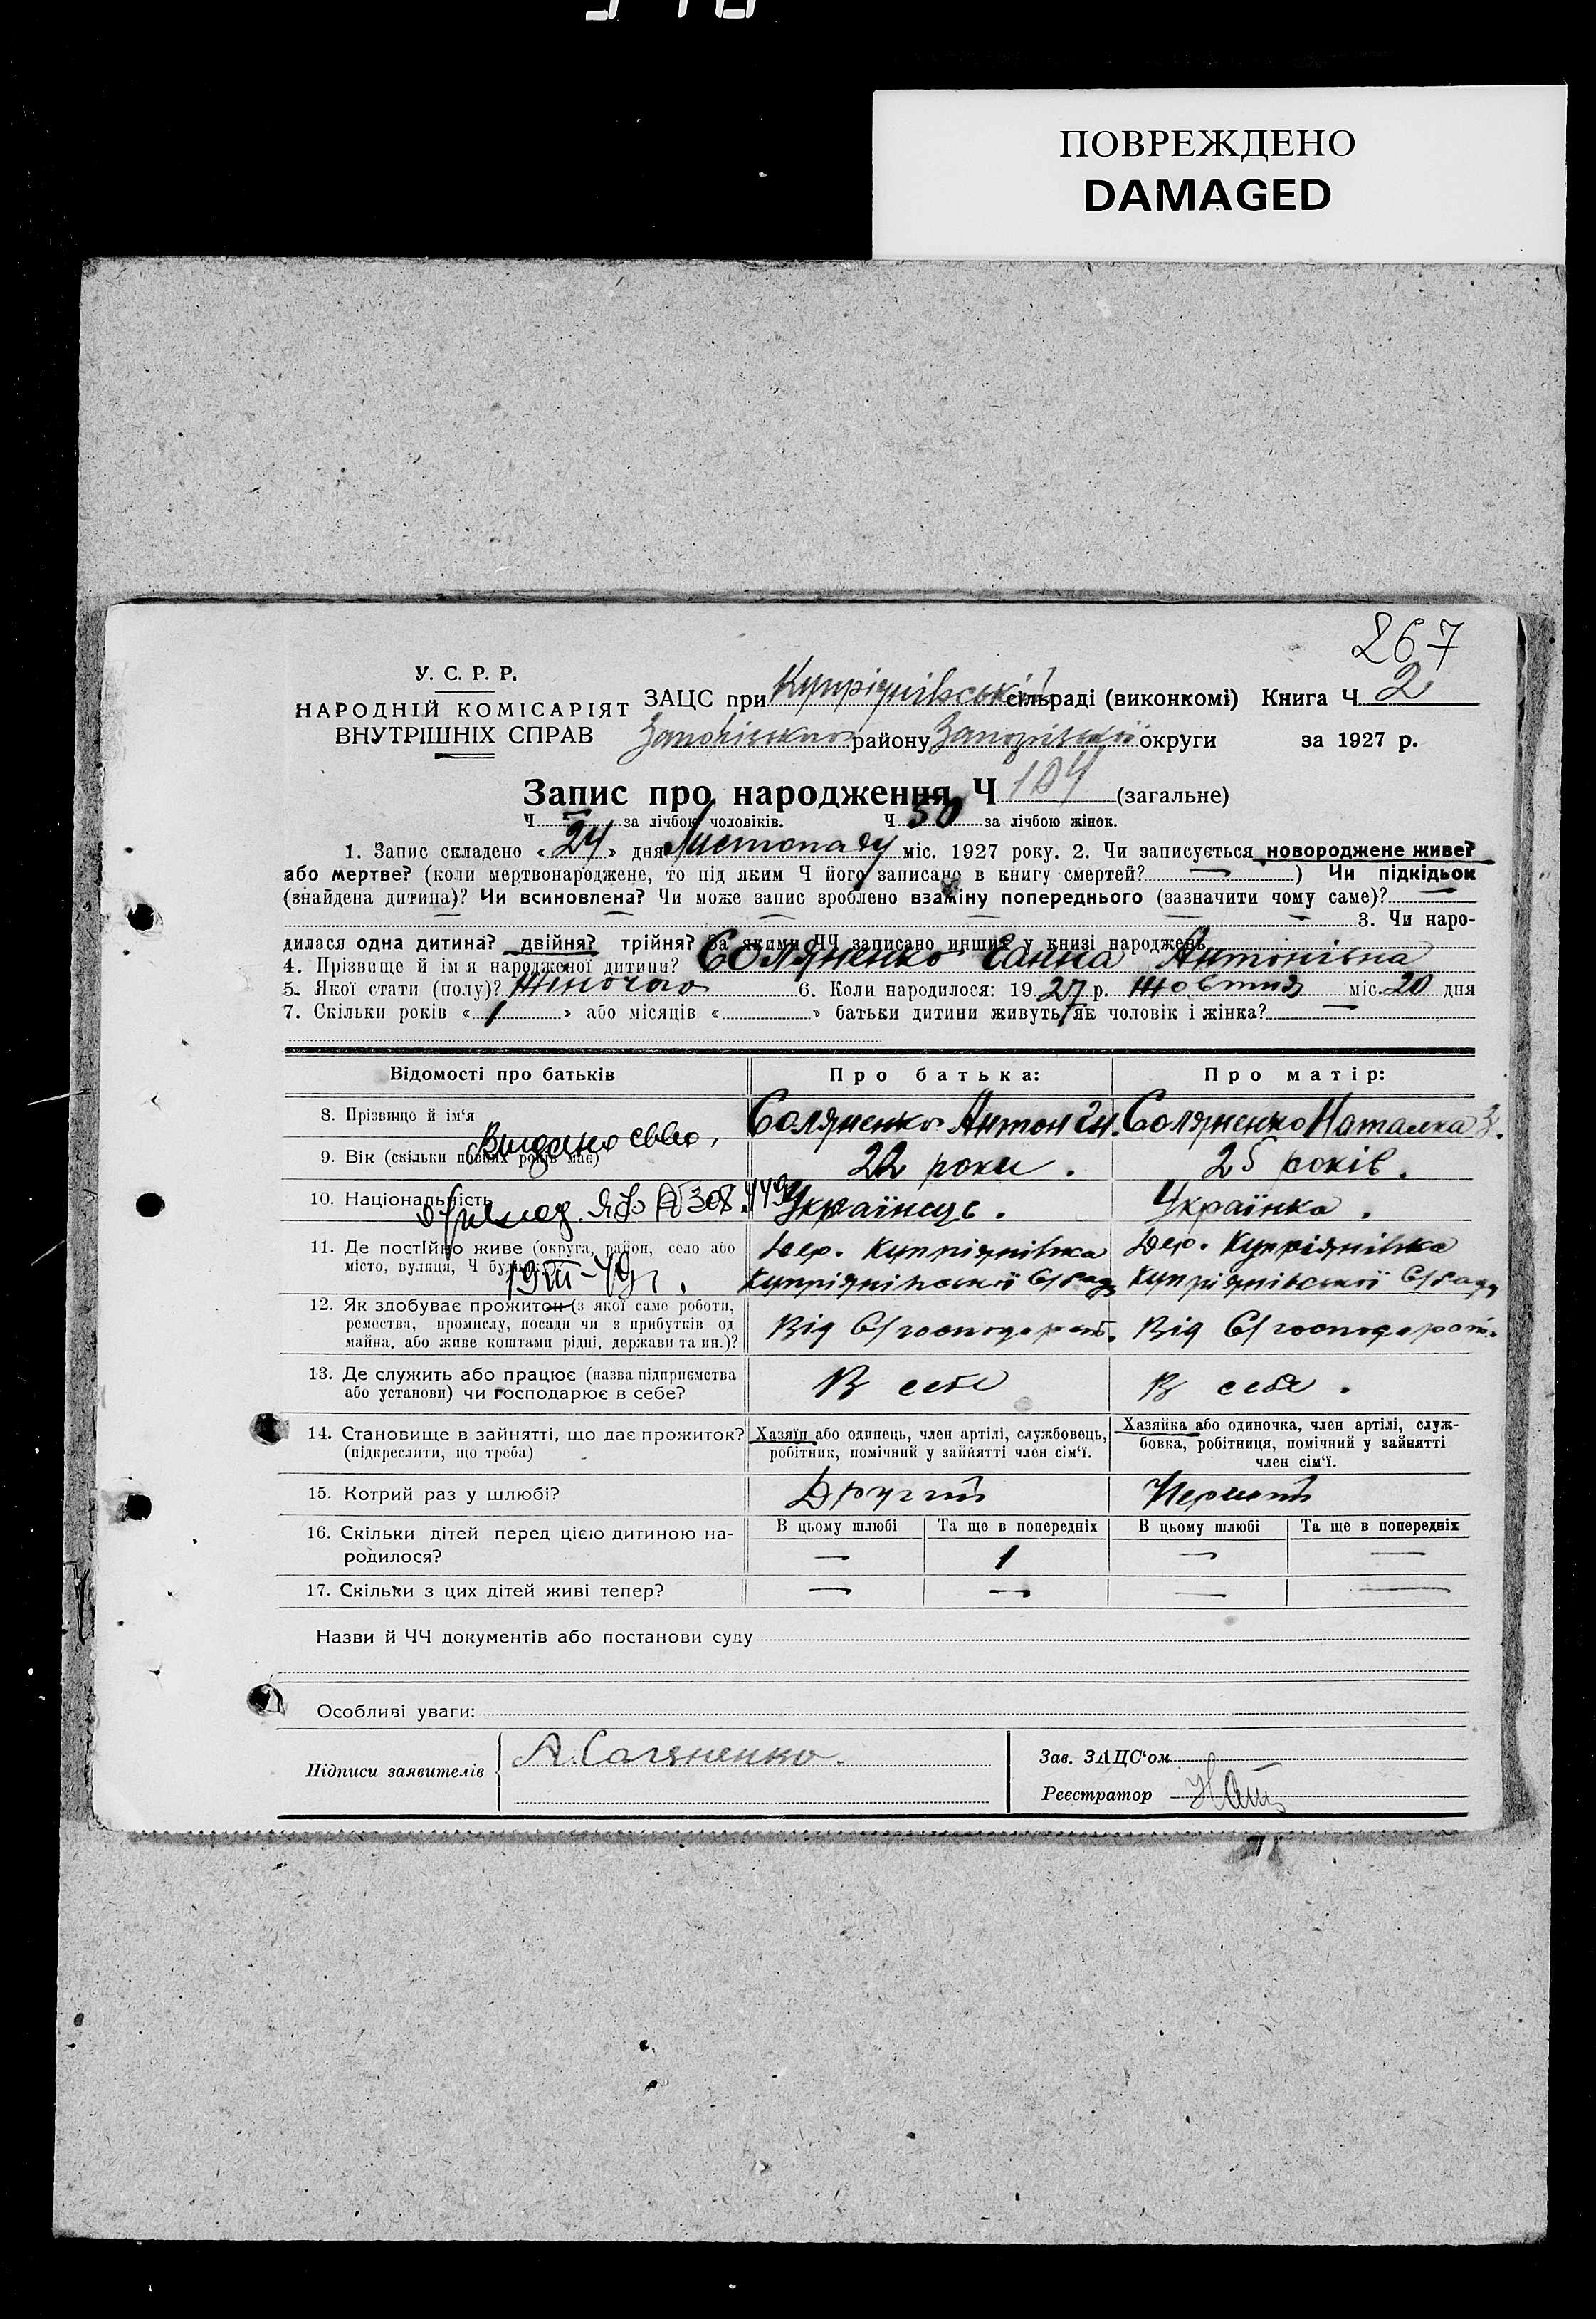 ПОВРЕЖДЕНО
DAMAGED
267
У. С. Р. Р.
НАРОДНІЙ КОМІСАРІЯТ
ВНУТРІШНІХ СПРАВ
ЗАЦС при Купріянівській сільраді (виконкомі) Книга Ч 2
району Запорізької округи за 1927 р.
Запис про народження Ч 104 (загальне)
Ч — за лічбою чоловіків. Ч 50 за лічбою жінок.
1. Запис складено « 24 » дня Листопаду міс. 1927 року. 2. Чи записується новороджене живе?
або мертве? (коли мертвонароджене, то під яким Ч його записано в книгу смертей? — ) Чи підкідьок
(знайдена дитина)? Чи всиновлена? Чи може запис зроблено взаміну попереднього (зазначити чому саме)? —
3. Чи наро-
дилася одна дитина? двійня? трійня? За якими ЧЧ записано инших у книзі народжень
4. Прізвище й ім'я народженої дитини? Соляненко Ганна Антонівна
5. Якої стати (полу)? Жіночого 6. Коли народилося: 1927 р. Жовтня міс. 20 дня
7. Скільки років « 1 » або місяців « » батьки дитини живуть як чоловік і жінка? —
Відомості про батьків Про батька: Про матір:
8. Прізвище й ім'я Соляненко Антон Ін. Соляненко Наталка З.
Видано свво,
9. Вік (скільки повних років має) 22 роки. 25 років.
10. Національність Українець. Українка.
ЯЮ № 308449
11. Де постійно живе (округа, район, село або Дер. Купріянівка Дер. Купріянівка
місто, вулиця, Ч будинку) Купріянівської С/ради Купріянівської С/ради
19 III - 49 г.
12. Як здобуває прожиток (з якої саме роботи,
ремества, промислу, посади чи з прибутків од Від С/господарст. Від С/господарст.
майна, або живе коштами рідні, держави та ин.)?
13. Де служить або працює (назва підприємства В себе В себе.
або установи) чи господарює в себе?
14. Становище в зайнятті, що дає прожиток? Хазяїн або одинець, член артілі, службовець, Хазяйка або одиночка, член артілі, служ-
(підкреслити, що треба) робітник, помічний у зайнятті член сім'ї. бовка, робітниця, помічний у зайнятті
член сім'ї.
15. Котрий раз у шлюбі? Другий Перший
16. Скільки дітей перед цією дитиною на- В цьому шлюбі Та ще в попередніх В цьому шлюбі Та ще в попередніх
родилося? — 1 — —
17. Скільки з цих дітей живі тепер? — — — —
Назви й ЧЧ документів або постанови суду
Особливі уваги:
Підписи заявителів А. Соляненко. Зав. ЗАЦС'ом
Реєстратор